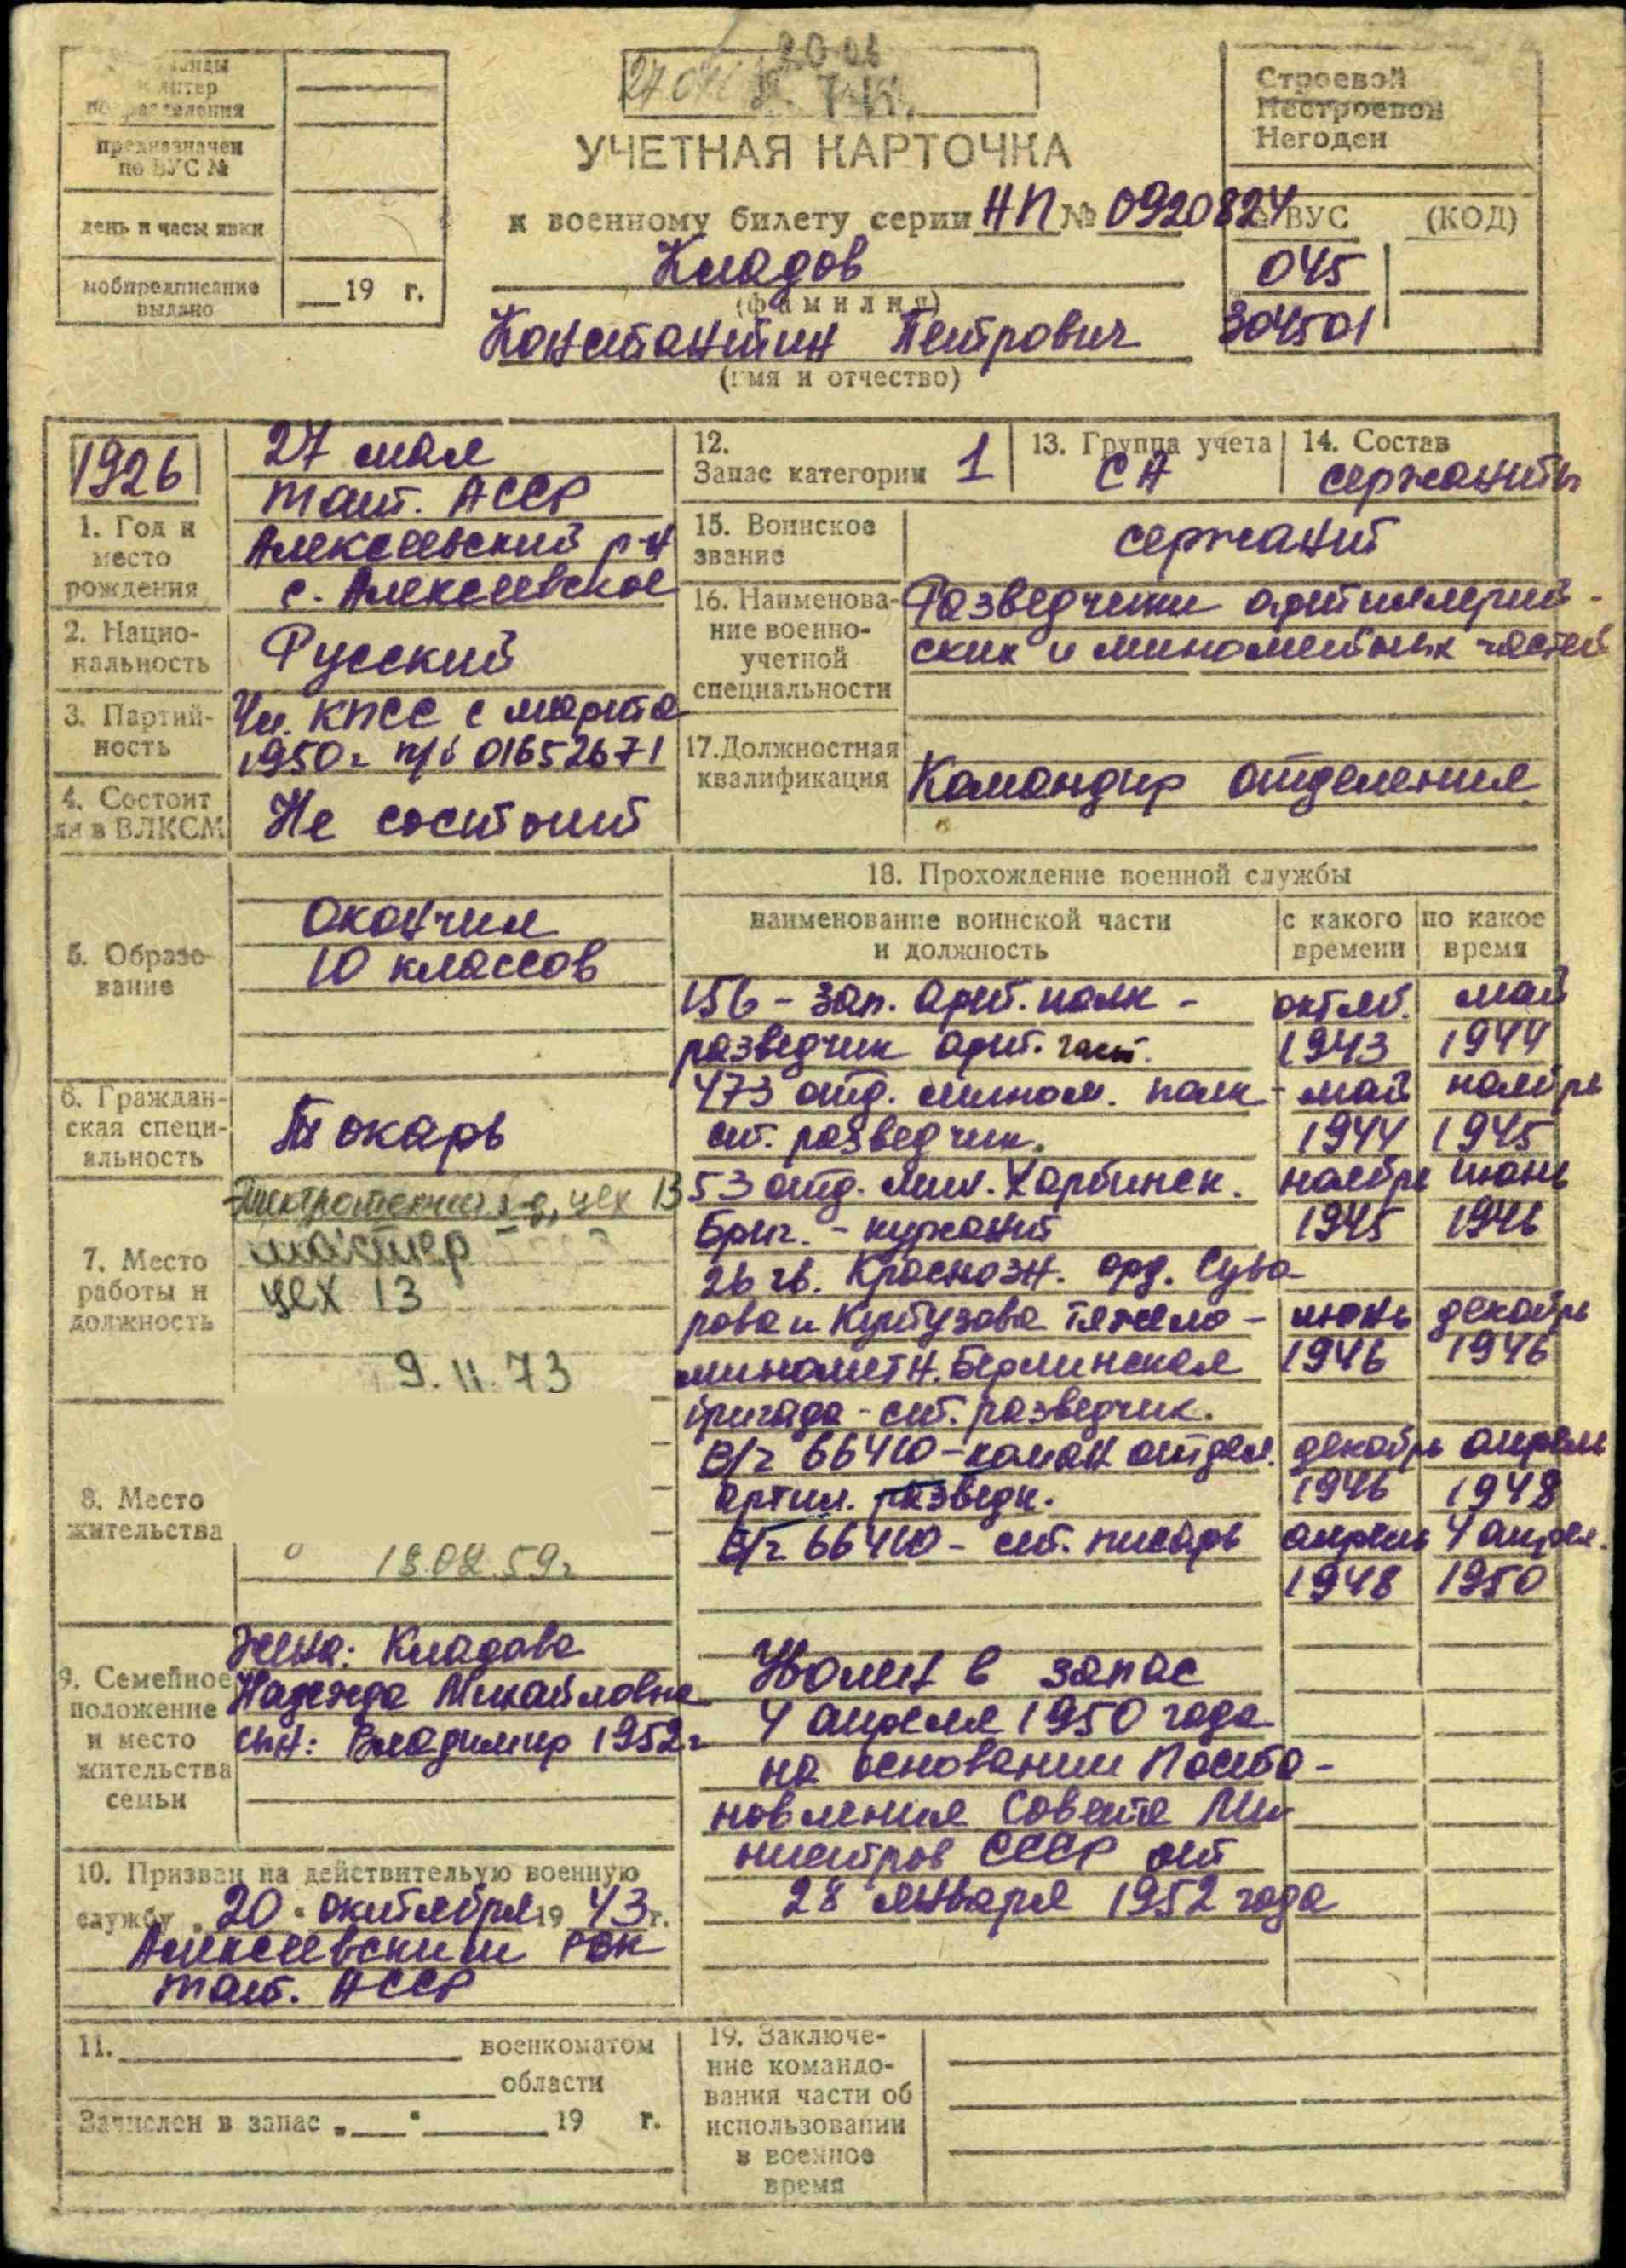 команды
и литер
подразделения
предназначен
по ВУС №
день и часы явки
мобпредписание
выдано
19 г.
20-03
УЧЕТНАЯ КАРТОЧКА
к военному билету серии НП № 0920824
Кладов
(фамилия)
Константин Петрович
(имя и отчество)
Строевой
Нестроевой
Негоден
№ ВУС (КОД)
045
304501
1926
1. Год и
место
рождения
27 мая
Тат. АССР
Алексеевский р-н
с. Алексеевское
2. Нацио-
нальность
Русский
3. Партий-
ность
Чл. КПСС с марта
1950г п/б 01652671
4. Состоит
ли в ВЛКСМ
Не состоит
5. Образо-
вание
Окончил
10 классов
6. Граждан-
ская специ-
альность
Токарь
7. Место
работы и
должность
цех 13
мастер
цех 13
9.11.73
8. Место
жительства
18.02.59г
9. Семейное
положение
и место
жительства
семьи
Жена: Кладова
Надежда Михайловна
сын: Владимир 1952г
10. Призван на действительую военную
службу „20" октября 1943 г.
Алексеевским РВК
Тат. АССР
11. военкоматом
области
Зачислен в запас „ " 19 г.
12.
Запас категории 1
13. Группа учета
СА
14. Состав
сержанты
15. Воинское
звание
сержант
16. Наименова-
ние военно-
учетной
специальности
Разведчики артиллерий-
ских и минометных частей
17. Должностная
квалификация
Командир отделения
18. Прохождение военной службы
наименование воинской части
и должность
с какого
времени
по какое
время
156 - зап. арт. полк - октяб. май
разведчик арт. част. 1943 1944
473 отд. мином. полк - май ноябрь
ст. разведчик. 1944 1945
53 отд. мин. Харбинск. ноябрь июнь
Бриг. - курсант 1945 1946
26 гв. Краснозн. орд. Суво-
рова и Кутузова тяжело- июнь декабрь
минометн. Берлинская 1946 1946
бригада - ст. разведчик.
В/ч 66410 - коман отдел. декабрь апрель
артил. разведк. 1946 1948
В/ч 66410 - ст. писарь апрель 4 апрел.
1948 1950
Уволен в запас
4 апреля 1950 года
на основании Поста-
новления Совета Ми
нистров СССР от
28 января 1952 года
19. Заключе-
ние командо-
вания части об
использовании
в военное
время